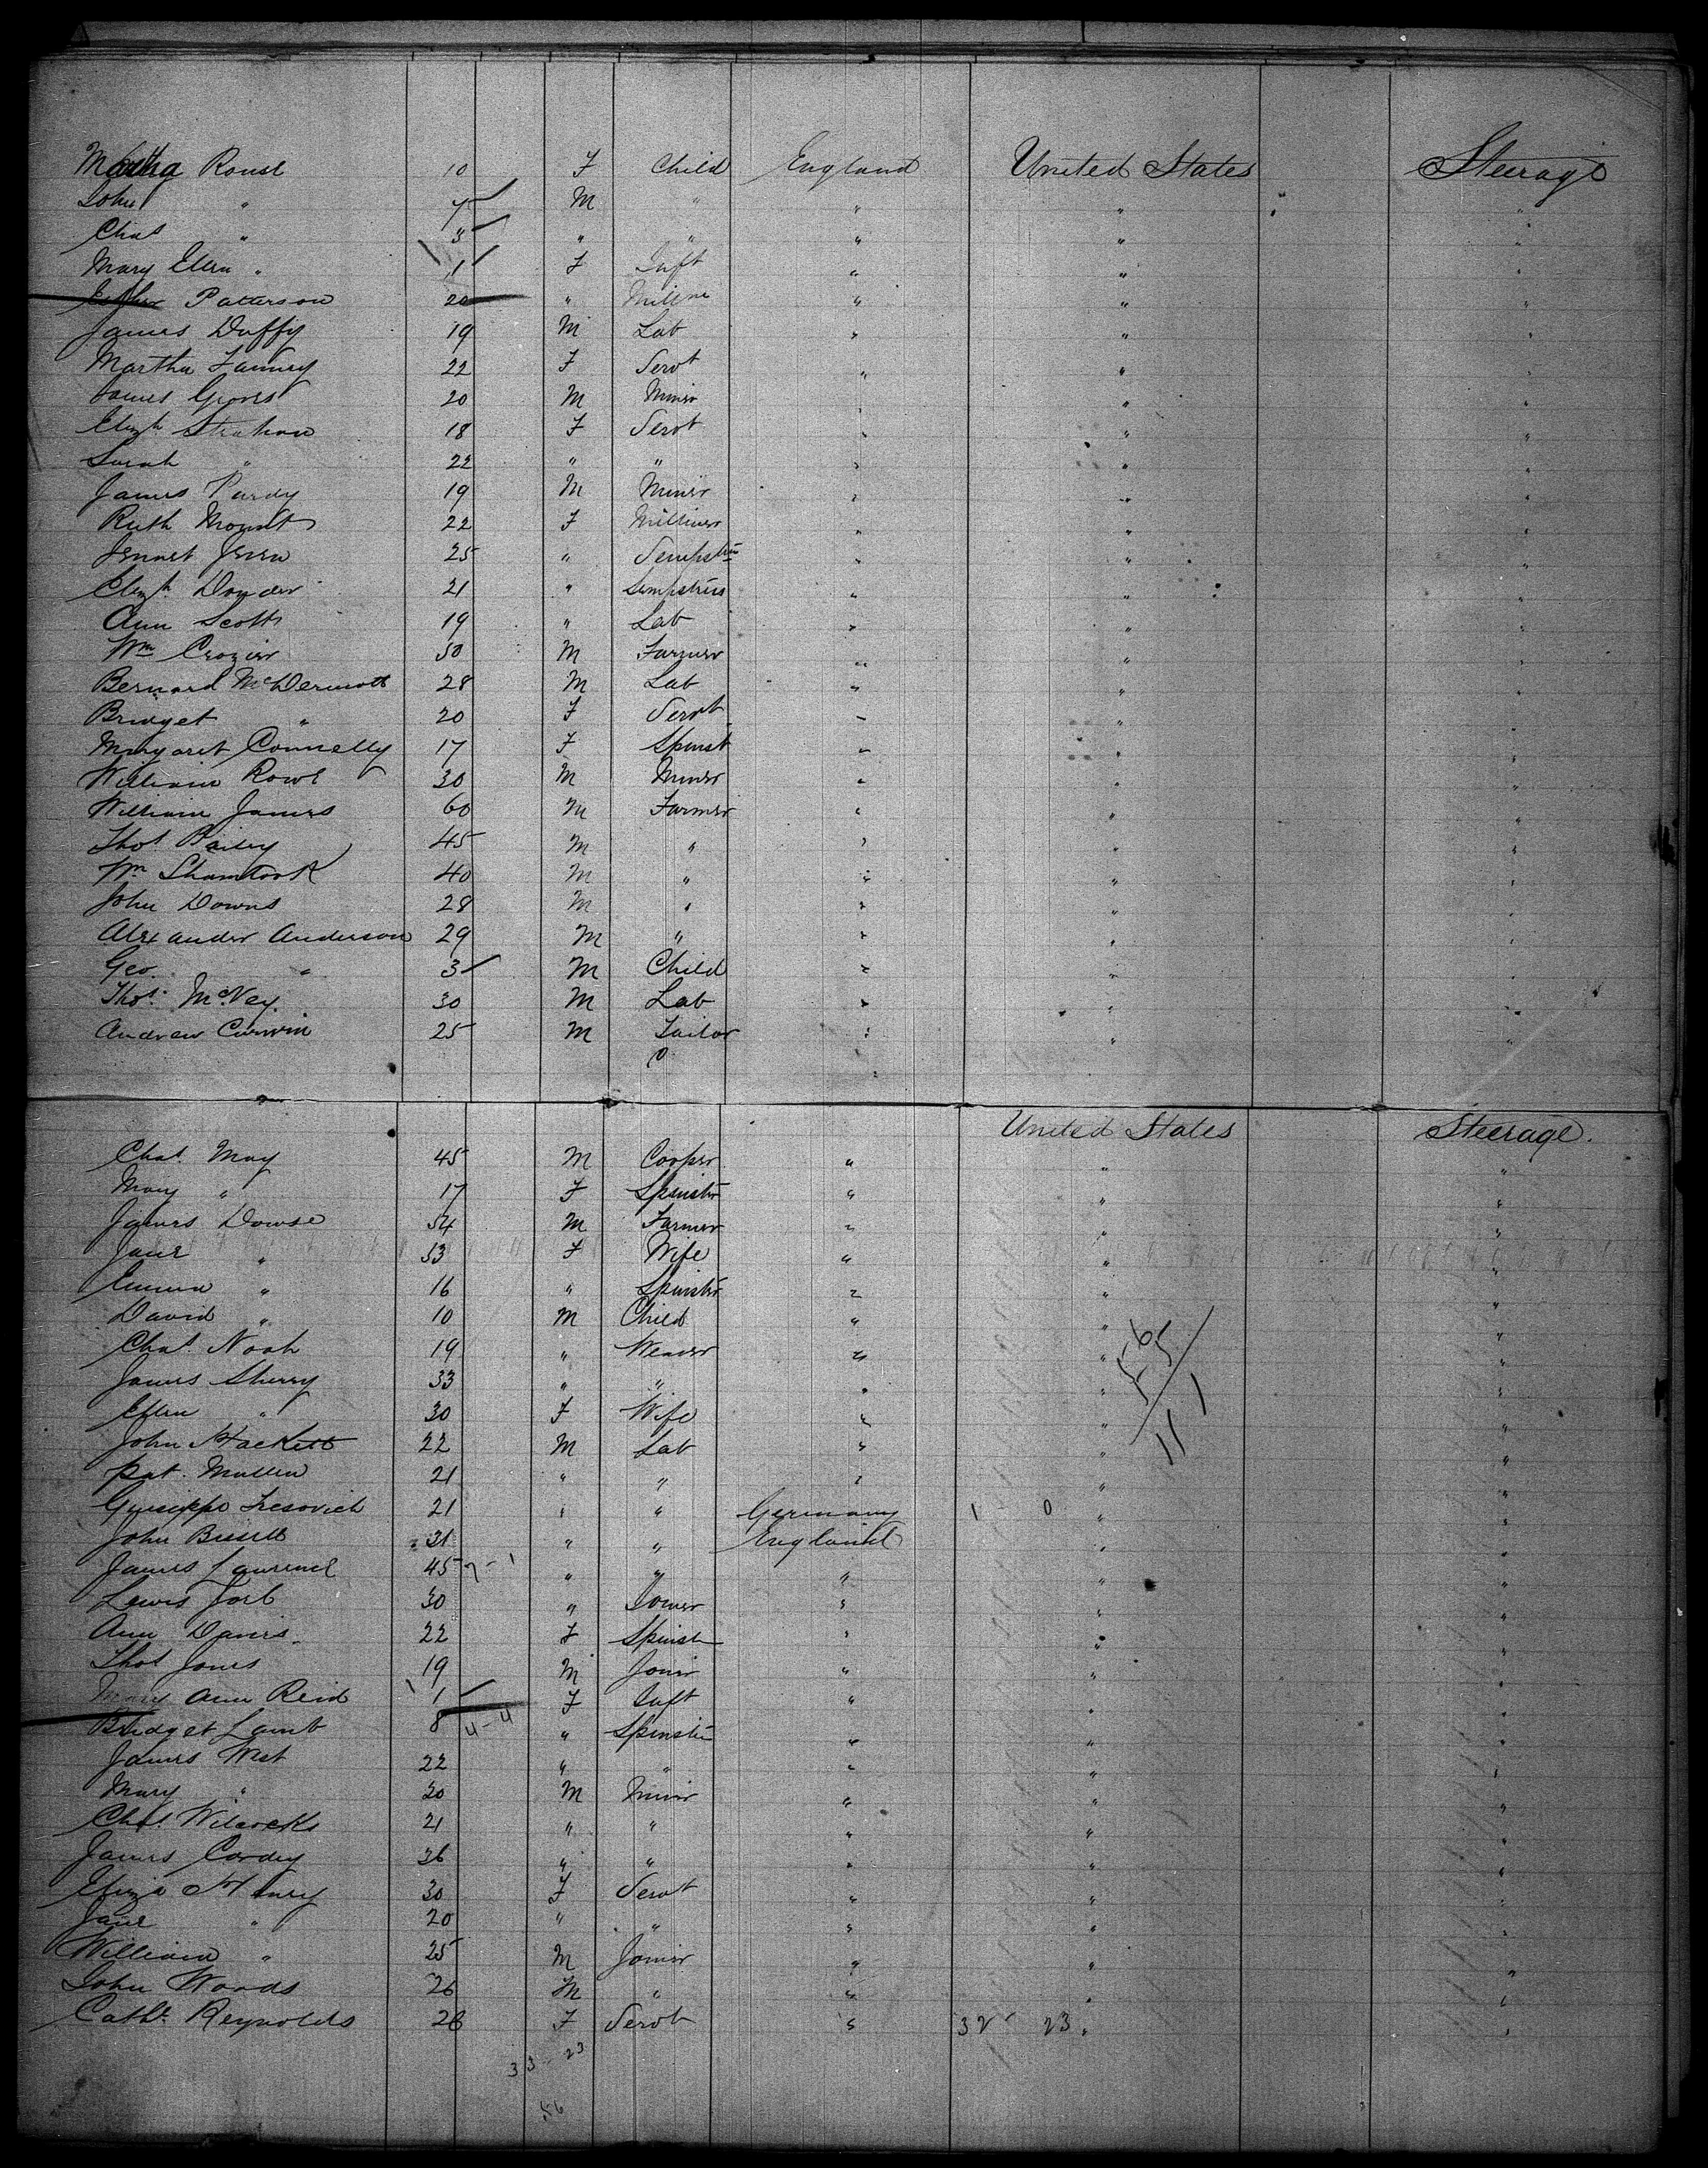 Martha Rouse 10 F Child England United States Steerage
John " 7 M " " " "
Chas " 3 " " " " "
Mary Ellen " 1 F Inft " " "
Esther Patterson 20 " " " "
James Duffy 19 M Lab " " "
Martha 22 F Servt " " "
James Groves 20 M Miner " " "
Elizh Strahan 18 F Servt " " "
Sarah " 22 " " " " "
James Purdy 19 M Miner " " "
Ruth Mount 22 F Milliner " " "
25 " " " "
Elizh 21 " Sempstress " " "
Ann Scott 19 " Lab " " "
Wm Crozier 50 M Farmer " " "
Bernard McDermott 28 M Lab " " "
Bridget " 20 F Servt " " "
Margaret Connelly 17 F Spinst " " "
William Rowe 30 M Miner " " "
William James 60 M Farmer " " "
Thos Bailey 45 M " " " "
Wm 40 M " " " "
John Downs 28 M " " " "
Alexander Anderson 29 M " " " "
Geo. " 3 M Child " " "
Thos. McVey 30 M Lab " " "
Andrew Curwin 25 M Tailor " " "
United States Steerage.
Chas. May 45 M Cooper " " "
Mary " 17 F Spinster " " "
James Dowse 54 M Farmer " " "
Jane " 53 F Wife " " "
Emma " 16 " Spinster " " "
David " 10 M Child " " "
Chas. Noah 19 " Weaver " " "
James Sherry 33 " " " " "
Ellen " 30 F Wife " " "
John Hackett 22 M Lab " " "
Pat. Mullen 21 " " " " "
Guiseppo 21 " " Germany 1 0 " "
John 31 " " England " "
James Lawrence 45 " " " " "
Lewis 30 " " " "
Ann Davis 22 F Spinst " " "
Thos Jones 19 M Joiner " " "
Mary Ann Reid 1 F Inft " " "
Bridget Lamb 8 4-4 " Spinster " " "
James West 22 " " " " "
Mary " 20 M Miner " " "
Chas. Wilcocks 21 " " " " "
James Cordey 36 " " " " "
Eliza Henry 30 F Servt " " "
Jane " 20 " " " " "
William " 25 M Joiner " " "
John Woods 26 M " " " "
Cathe Reynolds 26 F Servt " 32 23 " "
33 23
56